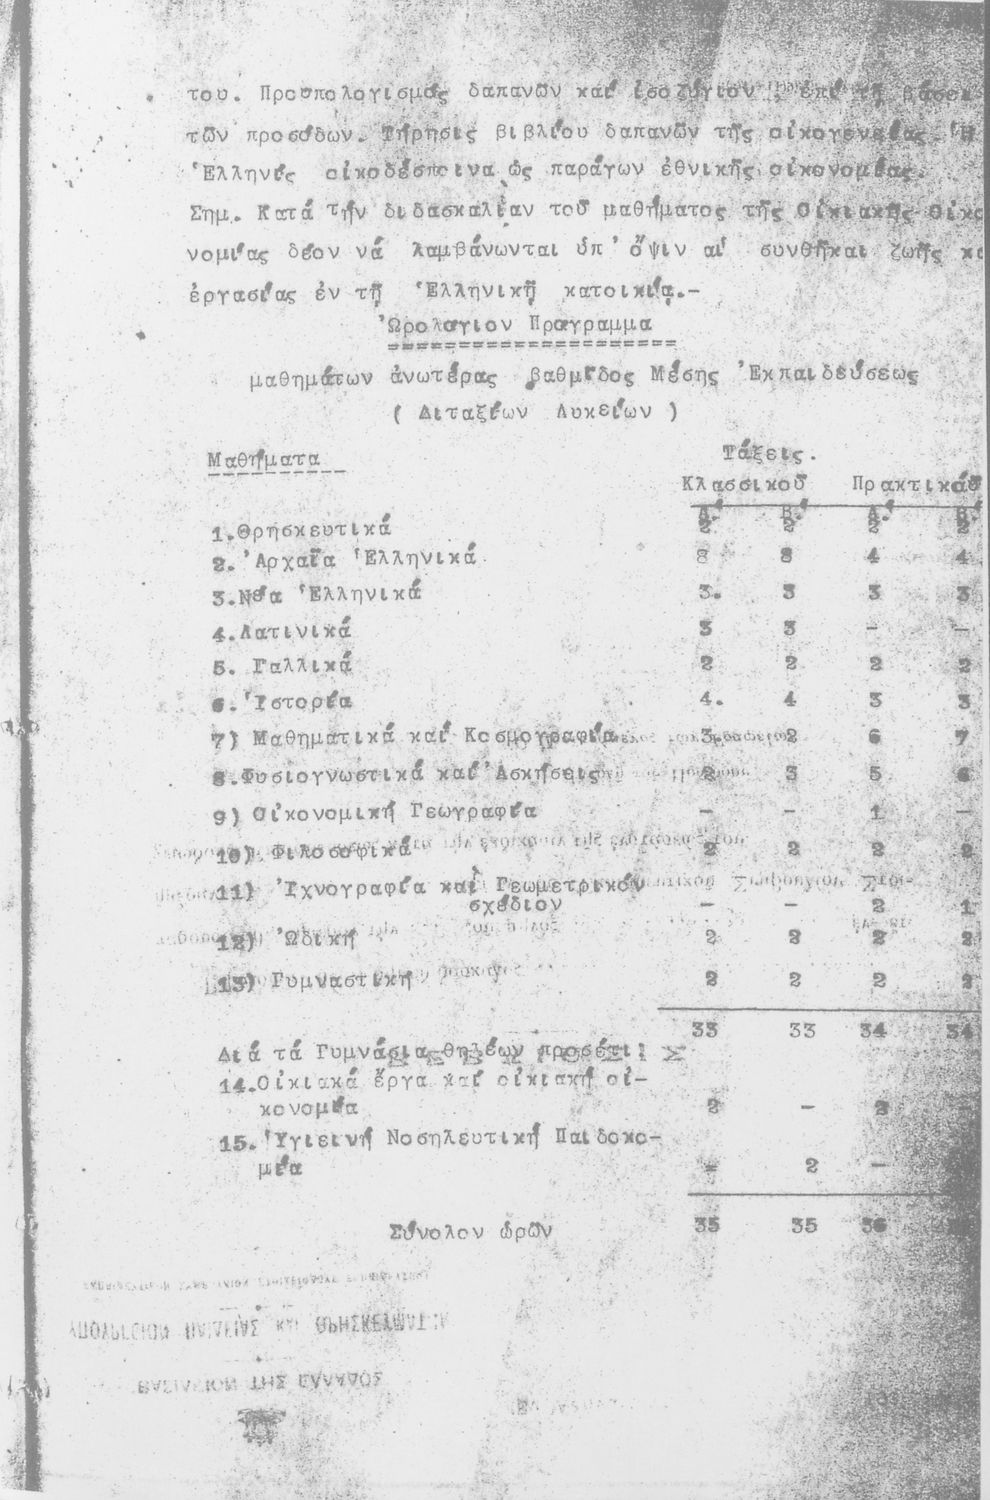 του. Προυπολογισμός δαπανῶν καί ἰσοζύγιον ἐπί τῇ βάσει
τῶν προσόδων. Τήρησις βιβλίου δαπανῶν τῆς οἰκογενείας. Ἡ
Ἑλληνίς οἰκοδέσποινα ὡς παράγων ἐθνικῆς οἰκονομίας.
Σημ. Κατά τήν διδασκαλίαν τοῦ μαθήματος τῆς Οἰκιακῆς Οἰκο
νομίας δέον νά λαμβάνωνται ὑπ' ὄψιν αἱ συνθῆκαι ζωῆς κα
ἐργασίας ἐν τῇ Ἑλληνικῇ κατοικίᾳ.-
Ὡρολόγιον Πρόγραμμα
====================
μαθημάτων ἀνωτέρας βαθμῖδος Μέσης Ἐκπαιδεύσεως
( Διταξίων Λυκείων )
Μαθήματα Τάξεις.
Κλασσικοῦ Πρακτικοῦ
Α.' Β.' Α.' Β.'
1.Θρησκευτικά 2 2 2 2
2. Ἀρχαῖα Ἑλληνικά 8 8 4 4
3.Νέα Ἑλληνικά 3. 3 3 3
4.Λατινικά 3 3 - -
5. Γαλλικά 2 2 2 2
6. Ἱστορία 4. 4 3 3
7) Μαθηματικά καί Κοσμογραφία 3 2 6 7
8.Φυσιογνωστικά καί Ἀσκήσεις 2 3 5 6
9) Οἰκονομική Γεωγραφία - - 1 -
10) Φιλοσοφικά 2 2 2 2
11) Ἰχνογραφία καί Γεωμετρικόν
σχέδιον - - 2 1
12) Ὠδική 2 2 2 2
13) Γυμναστική 2 2 2 2
33 33 34 34
Διά τά Γυμνάσια θηλέων προσέτι:
14.Οἰκιακά ἔργα καί οἰκιακή οἰ-
κονομία 2 - 2
15. Ὑγιεινή Νοσηλευτική Παιδοκο-
μία = 2 -
Σύνολον ὡρῶν 35 35 36
ΒΑΣΙΛΕΙΟΝ ΤΗΣ ΕΛΛΑΔΟΣ
ΥΠΟΥΡΓΕΙΟΝ ΠΑΙΔΕΙΑΣ ΚΑΙ ΘΡΗΣΚΕΥΜΑΤΩΝ